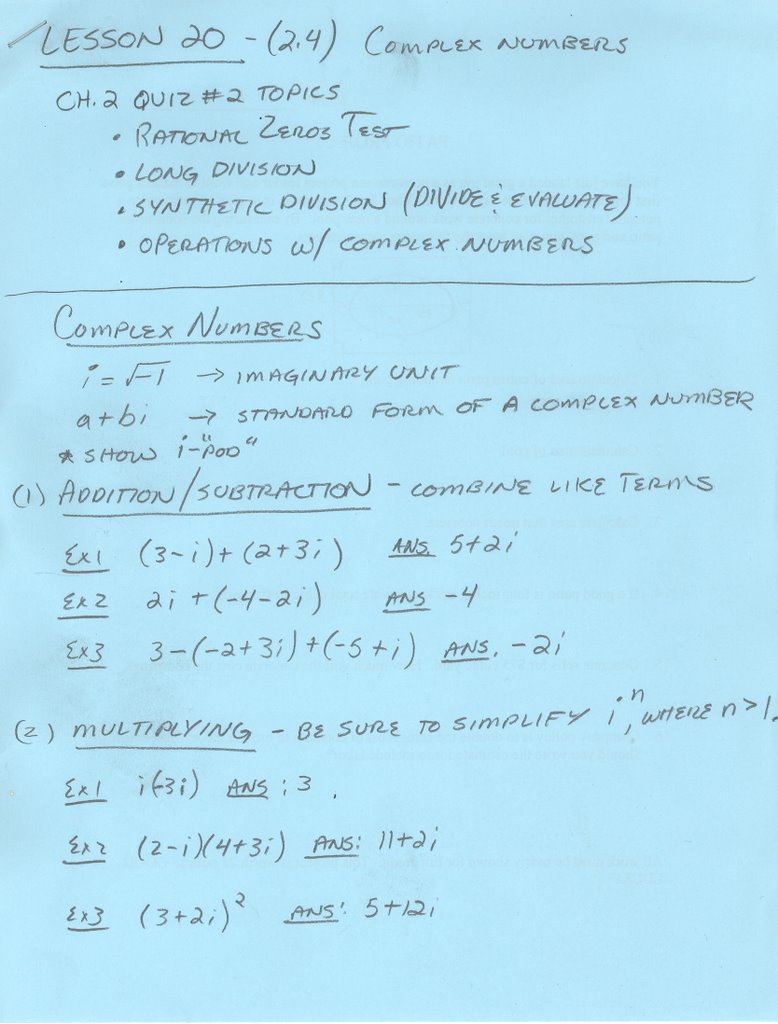 LESSON 20 - (2.4) COMPLEX NUMBERS
CH. 2 QUIZ #2 TOPICS
• RATIONAL ZEROS TEST
• LONG DIVISION
• SYNTHETIC DIVISION (DIVIDE & EVALUATE)
• OPERATIONS W/ COMPLEX NUMBERS
COMPLEX NUMBERS
i = √-1 → IMAGINARY UNIT
a+bi → STANDARD FORM OF A COMPLEX NUMBER
* SHOW i-"POD"
(1) ADDITION/SUBTRACTION - COMBINE LIKE TERMS
Ex1 (3-i)+(2+3i) ANS. 5+2i
Ex2 2i+(-4-2i) ANS -4
Ex3 3-(-2+3i)+(-5+i) ANS. -2i
(2) MULTIPLYING - BE SURE TO SIMPLIFY iⁿ, WHERE n>1.
Ex1 i(-3i) ANS: 3.
Ex2 (2-i)(4+3i) ANS: 11+2i
Ex3 (3+2i)² ANS: 5+12i